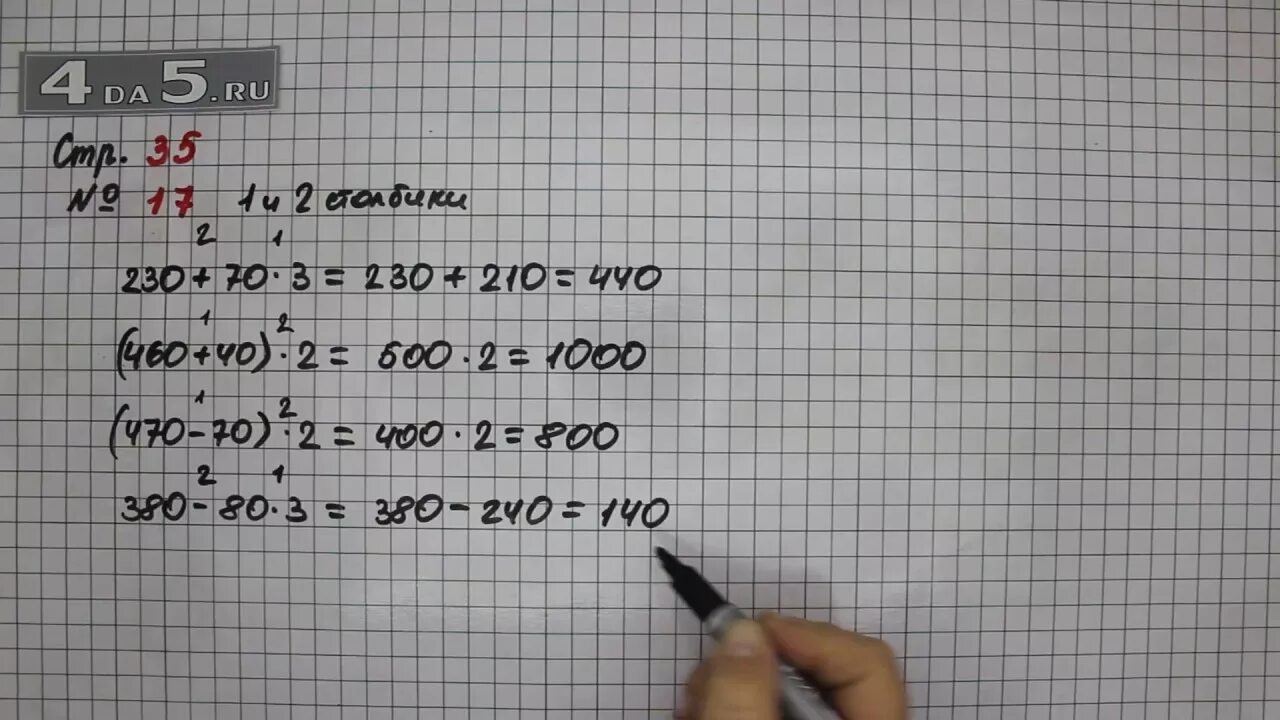 4DA5.RU
Стр. 35
№ 17 1 и 2 столбики
2 1
230 + 70 · 3 = 230 + 210 = 440
1 2
(460 + 40) · 2 = 500 · 2 = 1000
1 2
(470 - 70) · 2 = 400 · 2 = 800
2 1
380 - 80 · 3 = 380 - 240 = 140